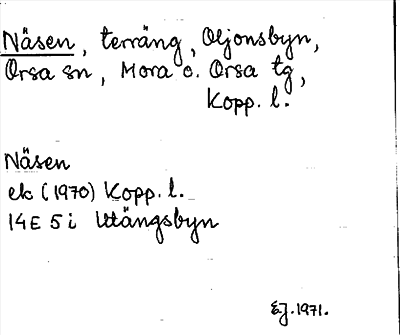 Näsen, terräng, Oljonsbyn,
Orsa sn, Mora o. Orsa tg,
Kopp. l.
Näsen
ek (1970) Kopp. l.
14E 5i Utängsbyn
EJ. 1971.